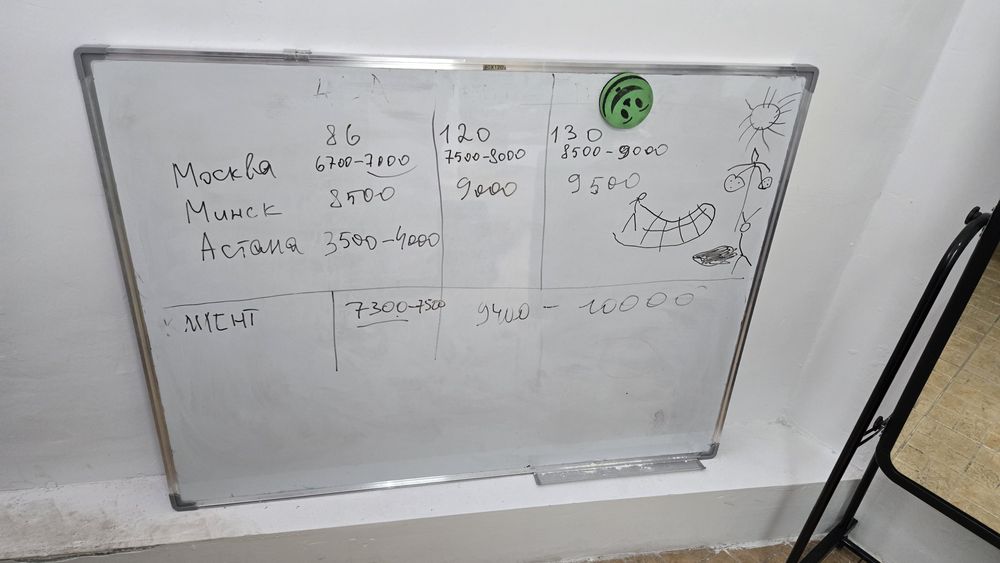 86 120 130
Москва 6700-7000 7500-8000 8500-9000
Минск 8500 9000 9500
Астана 3500-4000
7300-7500 9400 - 10000